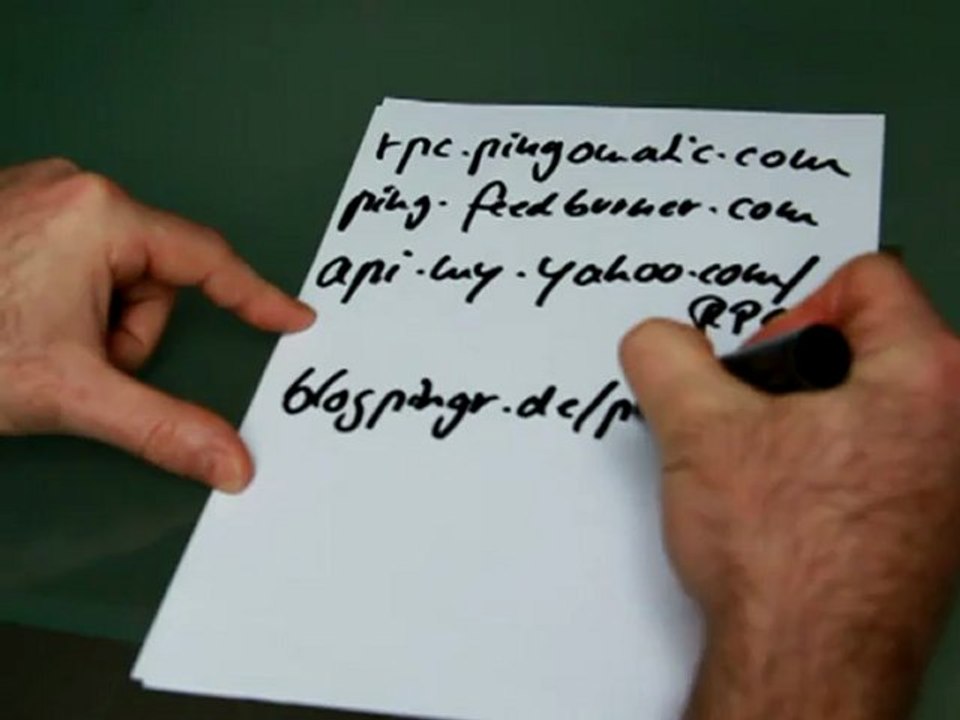 rpc.pingomatic.com
ping.feedburner.com
api.my.yahoo.com/
RPC
blogpingr.de/p